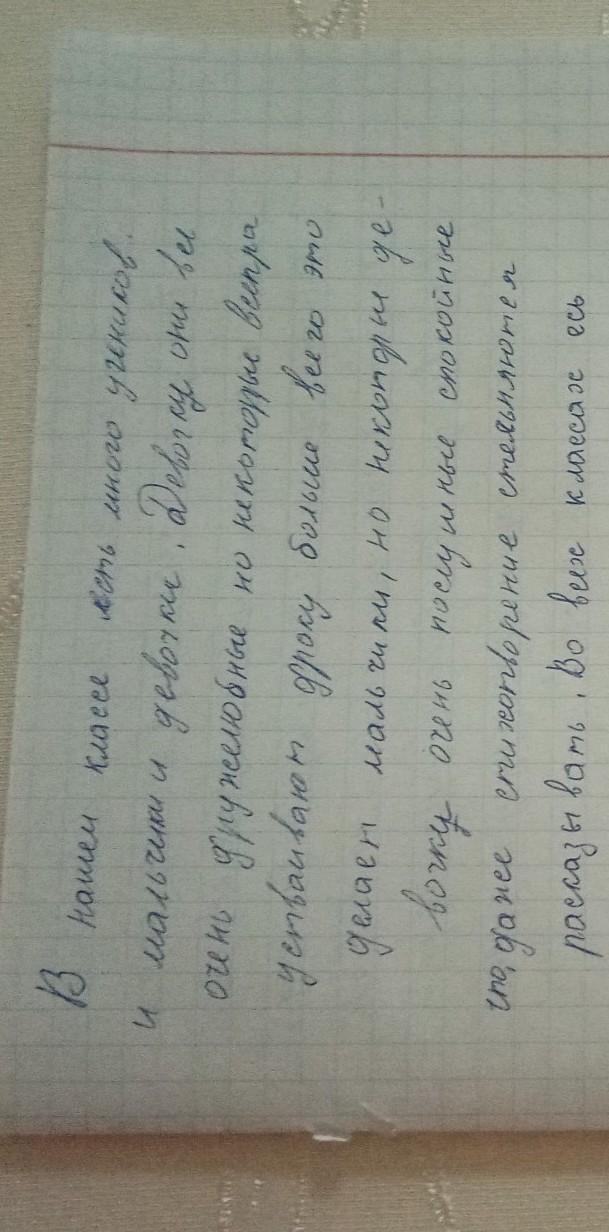 В нашем классе есть много учеников.
и мальчики и девочки. Девочку они все
очень дружелюбные но некоторые всегра
устваивают фроку больше всего это
делает мальчики, но некоторые де-
вочку очень послушные спокойные
что, даже стихотворение стесьняютея
расказы вать. Во всех классах есь